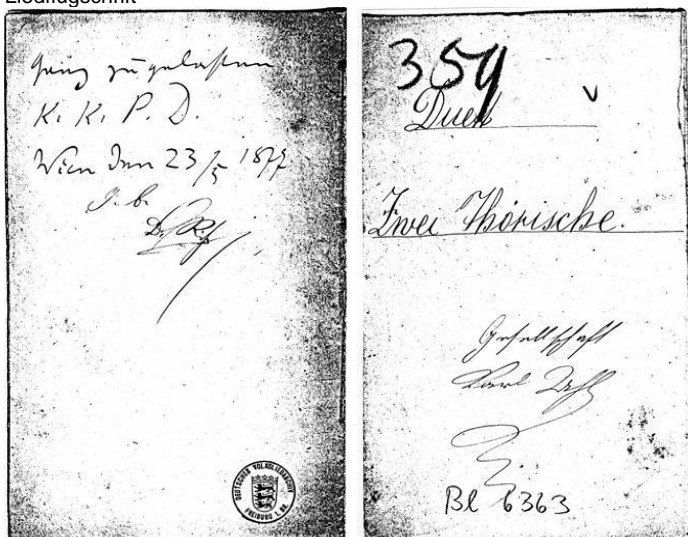 Liedflugschrift
ganz zugelassen
K. K. P. D.
Wien den 23/5 1877
DEUTSCHES VOLKSLIEDARCHIV
FREIBURG I. BR.
359
v
Duett
Zwei Thörische.
Gesellschaft
Karl
Bl 6363